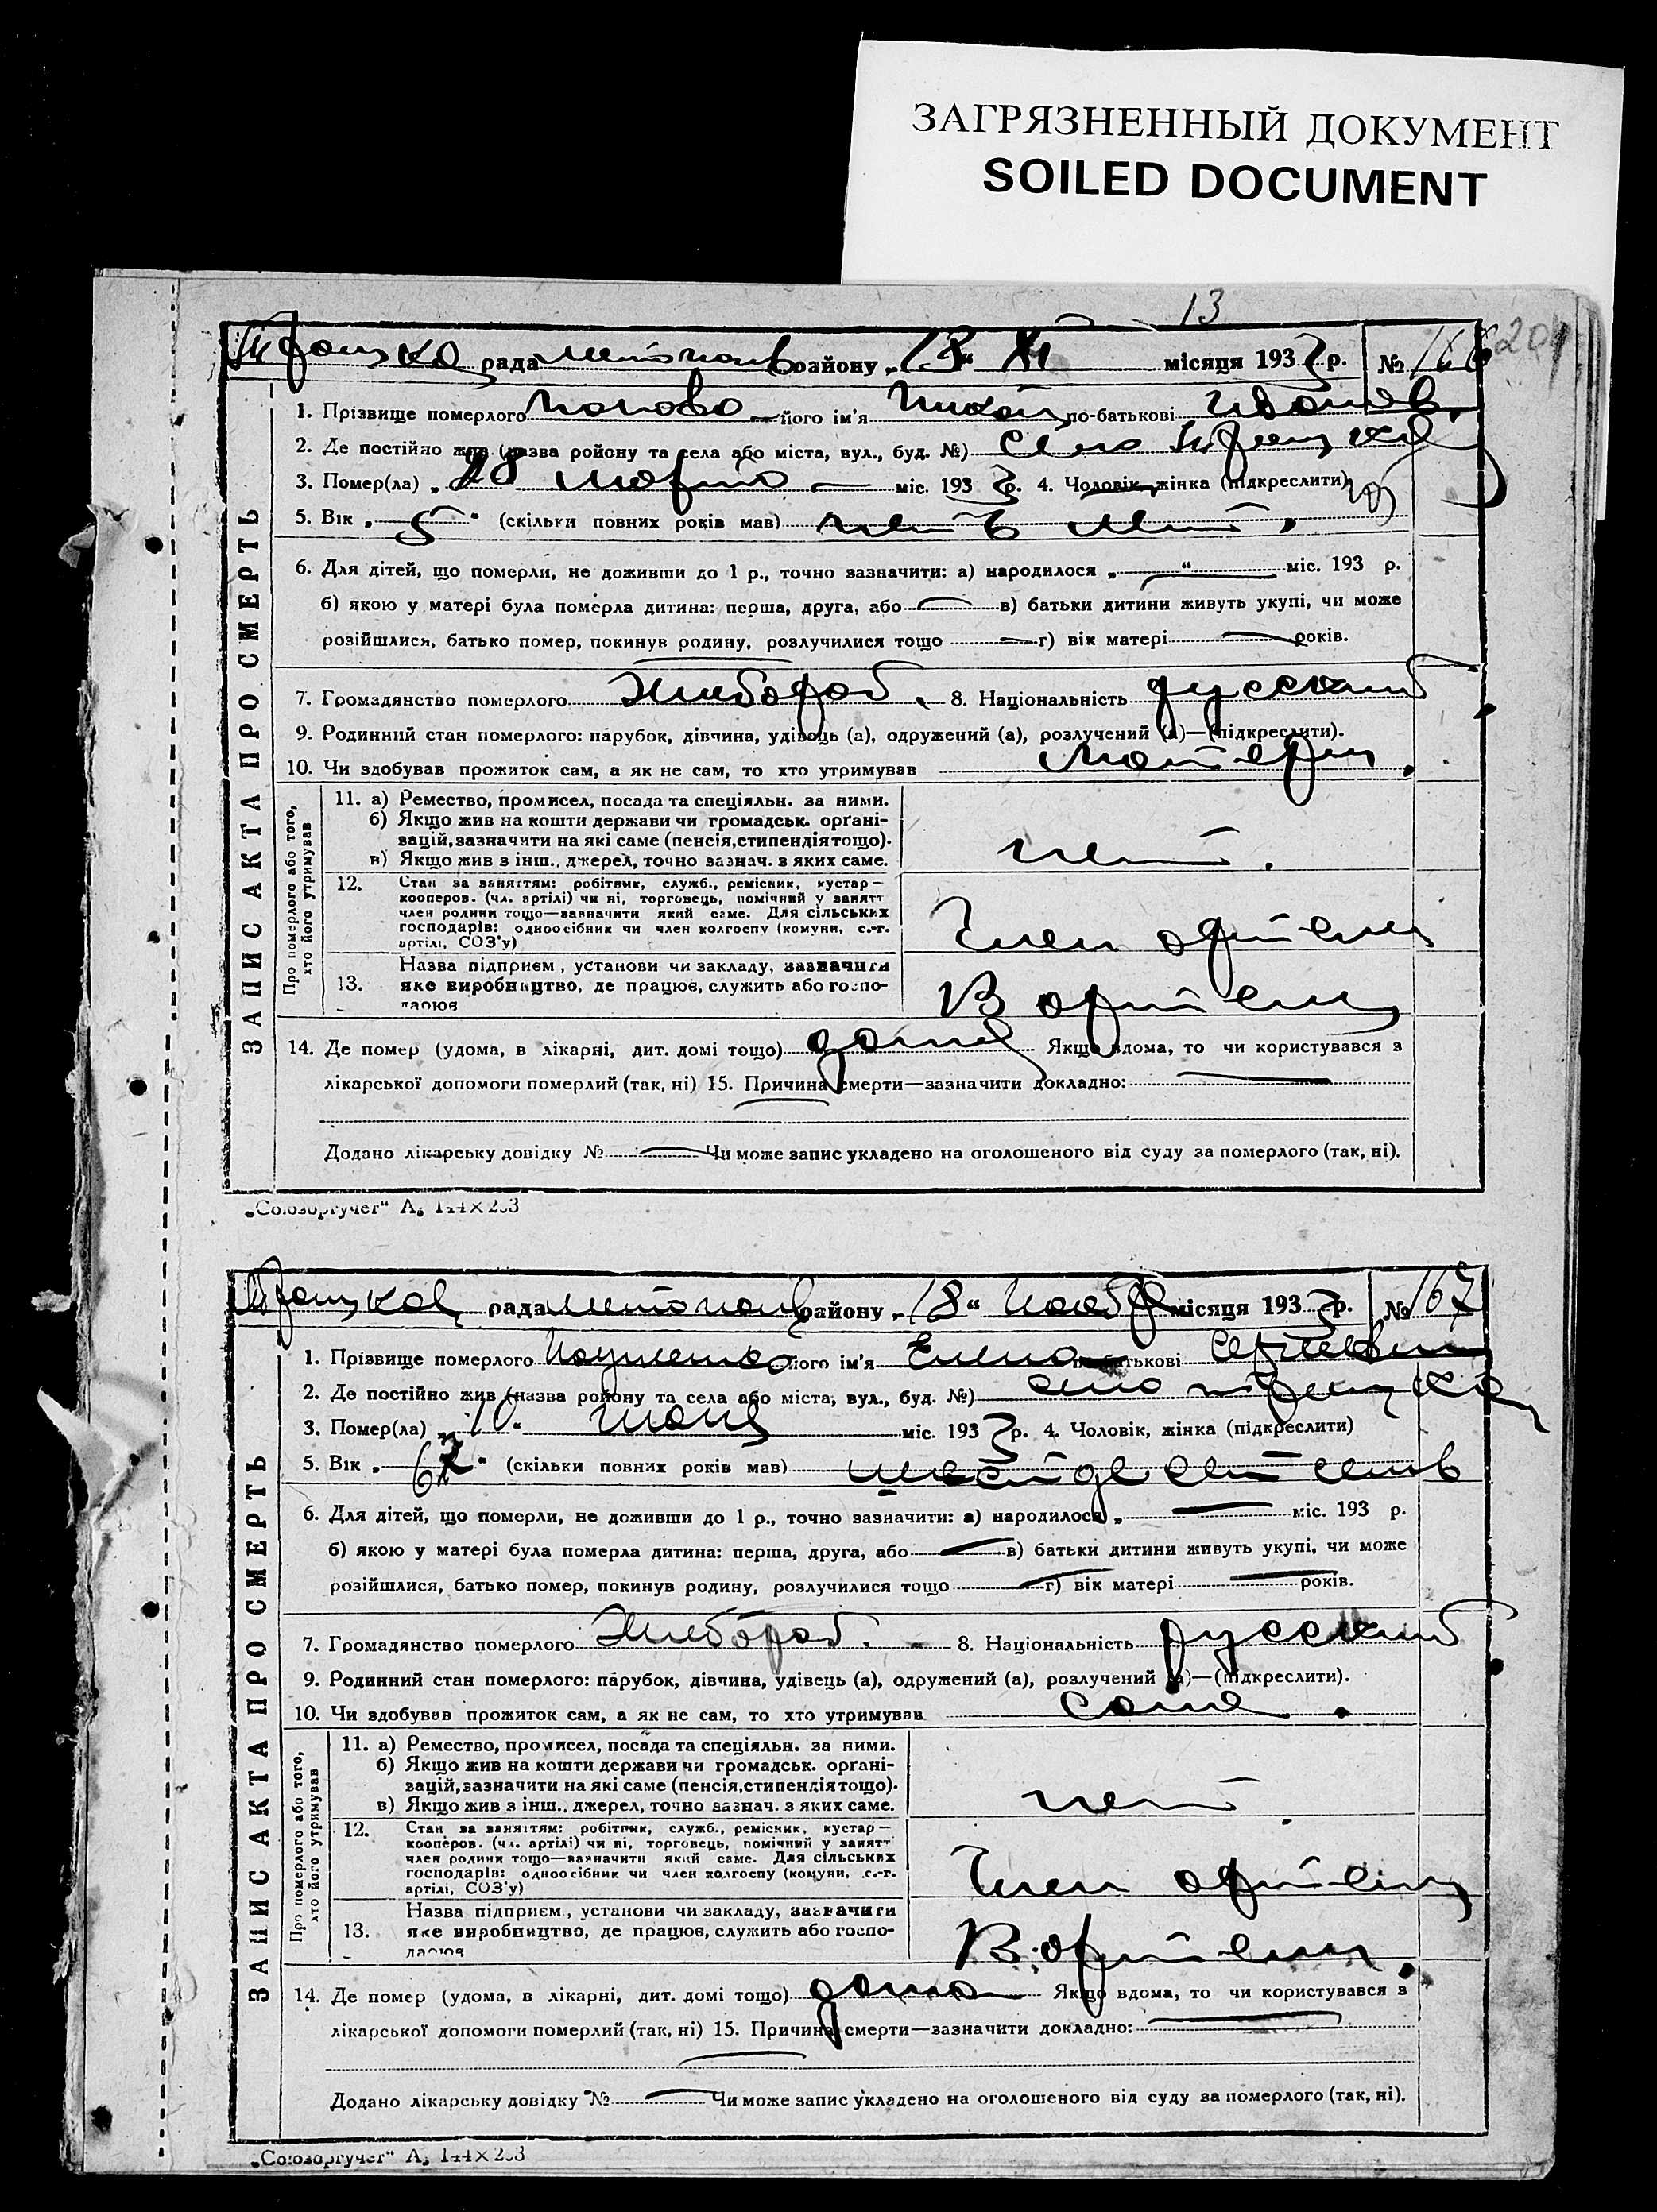 ЗАГРЯЗНЕННЫЙ ДОКУМЕНТ
SOILED DOCUMENT
13
рада району „18“ XI місяця 1933 р. № 166 204
1. Прізвище померлого Попова його ім'я по-батькові Иванов.
2. Де постійно жив (назва району та села або міста, вул., буд. №) село
3. Помер(ла) „28 марта міс. 1933 р. 4. Чоловік, жінка (підкреслити)
5. Вік „ 5 “ (скільки повних років мав) пять лет.
6. Для дітей, що померли, не доживши до 1 р., точно зазначити: а) народилося „ “ міс. 193 р.
б) якою у матері була померла дитина: перша, друга, або в) батьки дитини живуть укупі, чи може
розійшлися, батько помер, покинув родину, розлучилися тощо г) вік матері років.
7. Громадянство померлого хлебороб. 8. Національність русский
9. Родинний стан померлого: парубок, дівчина, удівець (а), одружений (а), розлучений (а)—(підкреслити).
10. Чи здобував прожиток сам, а як не сам, то хто утримував матери.
ЗАПИС АКТА ПРО СМЕРТЬ
Про померлого або того, хто його утримував
11. а) Ремество, промисел, посада та спеціяльн. за ними.
б) Якщо жив на кошти держави чи громадськ. орґані-
зацій, зазначити на які саме (пенсія, стипендія тощо).
в) Якщо жив з інш. джерел, точно зазнач. з яких саме.
нет.
12. Стан за заняттям: робітник, служб., ремісник, кустар—
кооперов. (чл. артілі) чи ні, торговець, помічний у занятт
член родини тощо—зазначити який саме. Для сільських
господарів: одноосібник чи член колгоспу (комуни, с.-г.
артілі, СОЗ'у)
Член артели
13. Назва підприєм., установи чи закладу, зазначити
яке виробництво, де працює, служить або госпо-
дарює
В артели
14. Де помер (удома, в лікарні, дит. домі тощо) дома Якщо вдома, то чи користувався з
лікарської допомоги померлий (так, ні) 15. Причина смерти—зазначити докладно:
Додано лікарську довідку № Чи може запис укладено на оголошеного від суду за померлого (так, ні).
„Союзоргучет“ А₅ 144×203
рада району „18“ Ноября місяця 1933 р. № 167
1. Прізвище померлого його ім'я Елена по-батькові Сергеевна
2. Де постійно жив (назва району та села або міста, вул., буд. №) село
3. Помер(ла) „10“ міс. 1933 р. 4. Чоловік, жінка (підкреслити)
5. Вік „ 67 “ (скільки повних років мав) шестьдесят семь
6. Для дітей, що померли, не доживши до 1 р., точно зазначити: а) народилося „ міс. 193 р.
б) якою у матері була померла дитина: перша, друга, або в) батьки дитини живуть укупі, чи може
розійшлися, батько помер, покинув родину, розлучилися тощо г) вік матері років.
7. Громадянство померлого хлебороб. 8. Національність русский
9. Родинний стан померлого: парубок, дівчина, удівець (а), одружений (а), розлучений (а)—(підкреслити).
10. Чи здобував прожиток сам, а як не сам, то хто утримував сама.
ЗАПИС АКТА ПРО СМЕРТЬ
Про померлого або того, хто його утримував
11. а) Ремество, промисел, посада та спеціяльн. за ними.
б) Якщо жив на кошти держави чи громадськ. орґані-
зацій, зазначити на які саме (пенсія, стипендія тощо).
в) Якщо жив з інш. джерел, точно зазнач. з яких саме.
нет.
12. Стан за заняттям: робітник, служб., ремісник, кустар—
кооперов. (чл. артілі) чи ні, торговець, помічний у занятт
член родини тощо—зазначити який саме. Для сільських
господарів: одноосібник чи член колгоспу (комуни, с.-г.
артілі, СОЗ'у)
Член артели
13. Назва підприєм., установи чи закладу, зазначити
яке виробництво, де працює, служить або госпо-
дарює
В артели.
14. Де помер (удома, в лікарні, дит. домі тощо) дома Якщо вдома, то чи користувався з
лікарської допомоги померлий (так, ні) 15. Причина смерти—зазначити докладно:
Додано лікарську довідку № Чи може запис укладено на оголошеного від суду за померлого (так, ні).
„Союзоргучет“ А₅ 144×203